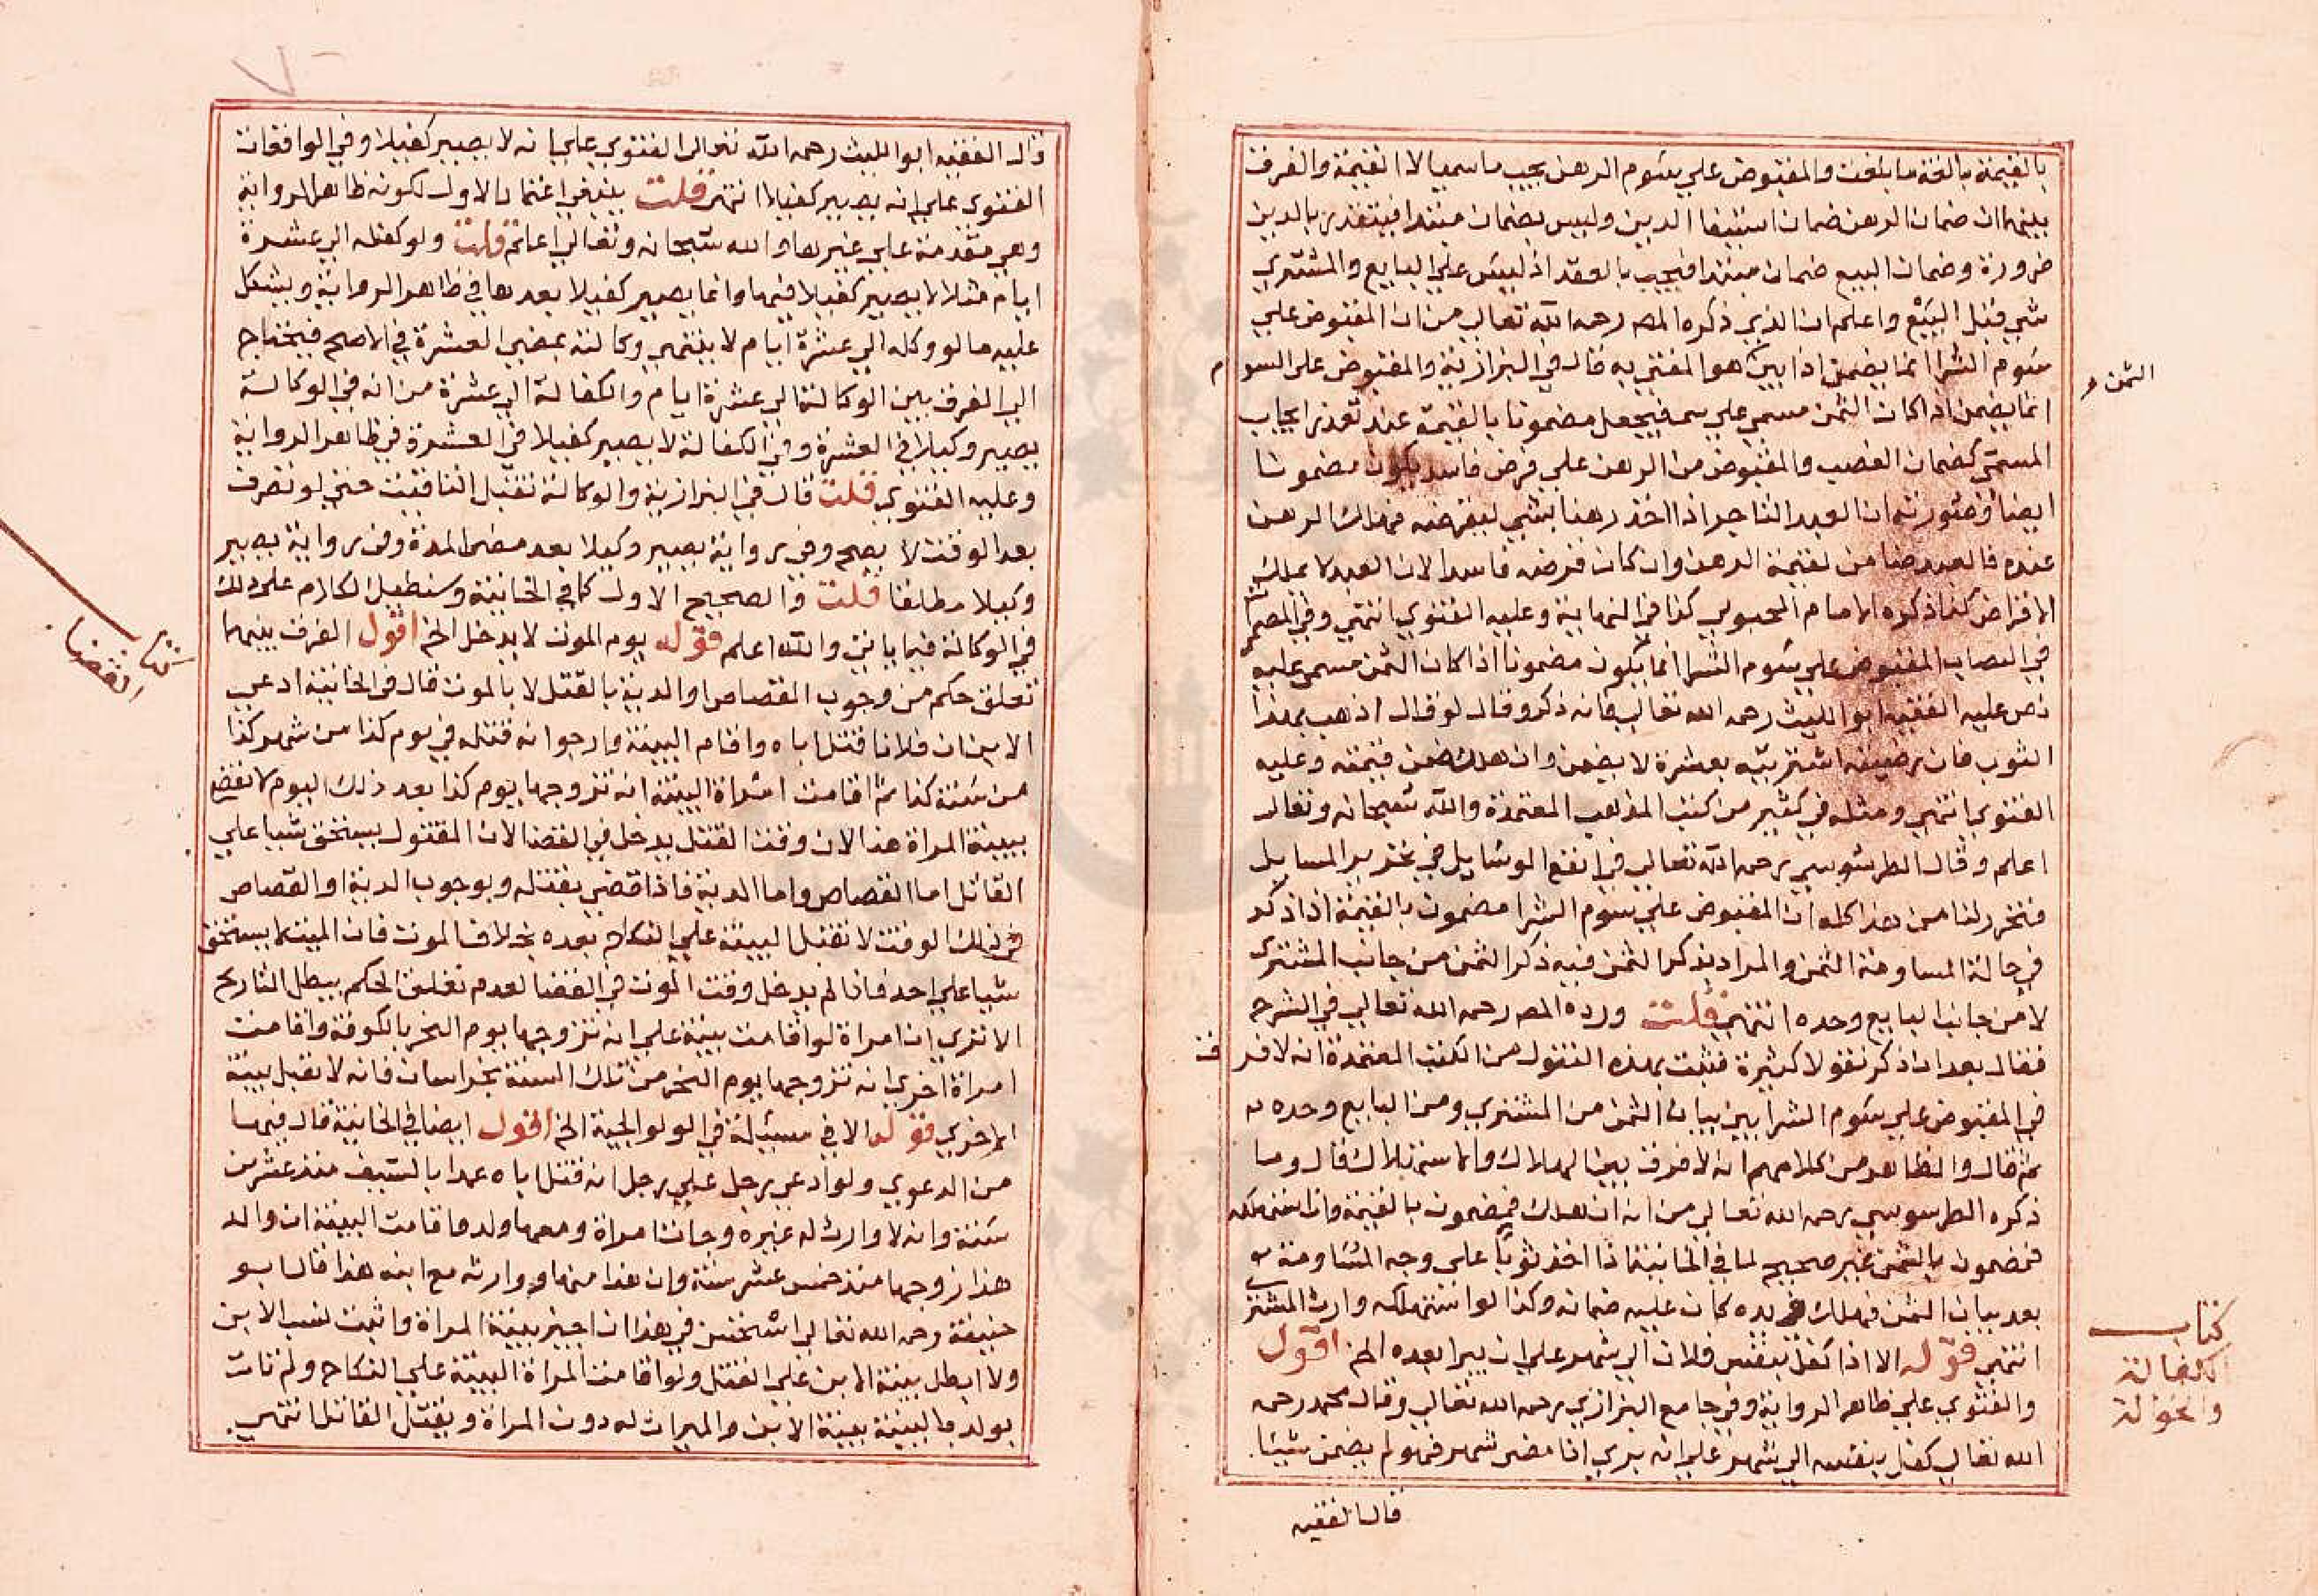 بالقيمة بالغة ما بلغت والمقبوض علي سوم الرهن يجب ما سميا لا القيمة والفرق
بينهما ان ضمان الرهن ضمان استيفا الدين وليس بضمان مبتدا فيتقدر بالدين
ضرورة وضمان البيع ضمان مبتدا فيجب بالعقد اذ ليس علي البايع والمشتري
شي قبل البيع واعلم ان الذي ذكره المصـ رحمه الله تعالي من ان المقبوض علي
سوم الشرا انما يضمن اذا بين هو المفتي به قال في البزازية والمقبوض علي السوم
الثمن
انما يضمن اذا كان الثمن مسمي علي فيجعل مضمونا بالقيمة عند تعذر ايجاب
المسمي كضمان الغصب والمقبوض من الرهن علي قرض فاسد يكون مضمونا
ايضا وصورته ان العبد التاجر اذا اخذ رهنا بشي ليقرضه فهلك الرهن
عنده فالعبد ضامن لقيمة الرهن وان كان قرضه فاسدا لان العبد لا يملك
الاقراض كذا ذكره الامام المحبوبي كذا في النهاية وعليه الفتوي انتهي وفي
في النصاب المقبوض علي سوم الشرا انما يكون مضمونا اذا كان الثمن مسمي عليه
نص عليه الفقيه ابو الليث رحمه الله تعالي فانه ذكر وقال لو قال اذهب بهذا
الثوب فان رضيته اشتريته بعشرة لا يضمن وان هلك ضمن قيمته وعليه
الفتوي انتهي ومثله في كثير من كتب المذهب المعتمدة والله سبحانه وتعالي
اعلم وقال الطرسوسي رحمه الله تعالي في انفع الوسايل في تحرير المسايل
فتحرر لنا من هذا كله ان المقبوض علي سوم الشرا مضمون بالقيمة اذا ذكر
في حالة المساومة الثمن والمراد بذكر الثمن فيه ذكر الثمن من جانب المشتري
لا من جانب البايع وحده انتهي قلت ورده المصـ رحمه الله تعالي في الشرح
فقال بعد ان ذكر نقولا كثيرة فثبت بهذه النقول من الكتب المعتمدة انه لا فرق
في المقبوض علي سوم الشرا بين بيان الثمن من المشتري ومن البايع وحده
ثم قال والظاهر من كلامهم انه لا فرق بين الهلاك والاستهلاك قال وما
ذكره الطرسوسي رحمه الله تعالي من انه ان هلك فمضمون بالقيمة وان استهلكه
فمضمون بالثمن غير صحيح لما في الخانية اذا اخذ ثوبا علي وجه المساومة
بعد بيان الثمن فهلك في يده كان عليه ضمانه وكذا لو استهلكه وارث المشتري
انتهي قوله الا اذا كفل بنفس فلان الي شهر علي ان يبرا بعده الخ اقول
كتاب
الكفالة
والحوالة
والفتوي علي ظاهر الرواية وفي جامع البزازي رحمه الله تعالي وقال محمد رحمه
الله تعالي كفل بنفسه الي شهر علي انه بري اذا مضي شهر فهو لم يضمن شيئا
قال الفقيه
قال الفقيه ابو الليث رحمه الله تعالي الفتوي علي انه لا يصير كفيلا وفي الواقعات
الفتوي علي انه يصير كفيلا انتهي قلت ينبغي اعتماد الاول لكونه ظاهر الرواية
وهي مقدمة علي غيرها والله سبحانه وتعالي اعلم قلت ولو كفله الي عشرة
ايام مثلا لا يصير كفيلا فيها وانما يصير كفيلا بعدها في ظاهر الرواية ويشكل
عليه ما لو وكله الي عشرة ايام لا ينتهي وكالته بمضي العشرة في الاصح فيحتاج
الي الفرق بين الوكالة الي عشرة ايام والكفالة الي عشرة من انه في الوكالة
يصير وكيلا في العشرة وفي الكفالة لا يصير كفيلا في العشرة في ظاهر الرواية
وعليه الفتوي قلت قال في البزازية والوكالة تقبل التاقيت حتي لو تصرف
بعد الوقت لا يصح وفي رواية يصير وكيلا بعد مضي المدة وفي رواية يصير
وكيلا مطلقا قلت والصحيح الاول كما في الخانية وسنطيل الكلام علي ذلك
في الوكالة فيما ياتي والله اعلم قوله يوم الموت لا يدخل الخ اقول الفرق بينهما
كتاب القضا
تعلق حكم من وجوب القصاص او الدية بالقتل لا بالموت قال في الخانية ادعي
الابن ان فلانا قتل اباه واقام البينة وارخوا انه قتله في يوم كذا من شهر كذا
من سنة كذا ثم اقامت امراة البينة انه تزوجها يوم كذا بعد ذلك اليوم لا تقضي
ببينة المراة هذا لان وقت القتل يدخل في القضا لان المقتول يستحق شيا علي
القاتل اما القصاص واما الدية فاذا قضي بقتله وبوجوب الدية او القصاص
في ذلك الوقت لا تقبل البينة علي النكاح بعده بخلاف الموت فان الميت لا يستحق
شيا علي احد فاذا لم يدخل وقت الموت في القضا لعدم تعلق الحكم يبطل التاريخ
الا تري ان امراة لو اقامت بينة علي انه تزوجها يوم النحر بالكوفة واقامت
امراة اخري انه تزوجها يوم النحر من تلك السنة بخراسان فانه لا تقبل بينة
الاخري قوله الا في مسئلة في الولوالجية الخ اقول ايضا في الخانية قال فيها
من الدعوي ولو ادعي رجل علي رجل انه قتل اباه عمدا بالسيف منذ عشرين
سنة وانه لا وارث له غيره وجات امراة ومعها ولد فاقامت البينة ان والد
هذا تزوجها منذ خمس عشر سنة وان هذا منها ووارثه مع ابنه هذا قال ابو
حنيفة رحمه الله تعالي استحسن في هذا ان اجيز بينة المراة واثبت نسب الابن
ولا ابطل بينة الابن علي القتل ولو اقامت المراة البينة علي النكاح ولم تات
بولد فالبينة بينة الابن والميراث له دون المراة ويقتل القاتل انتهي